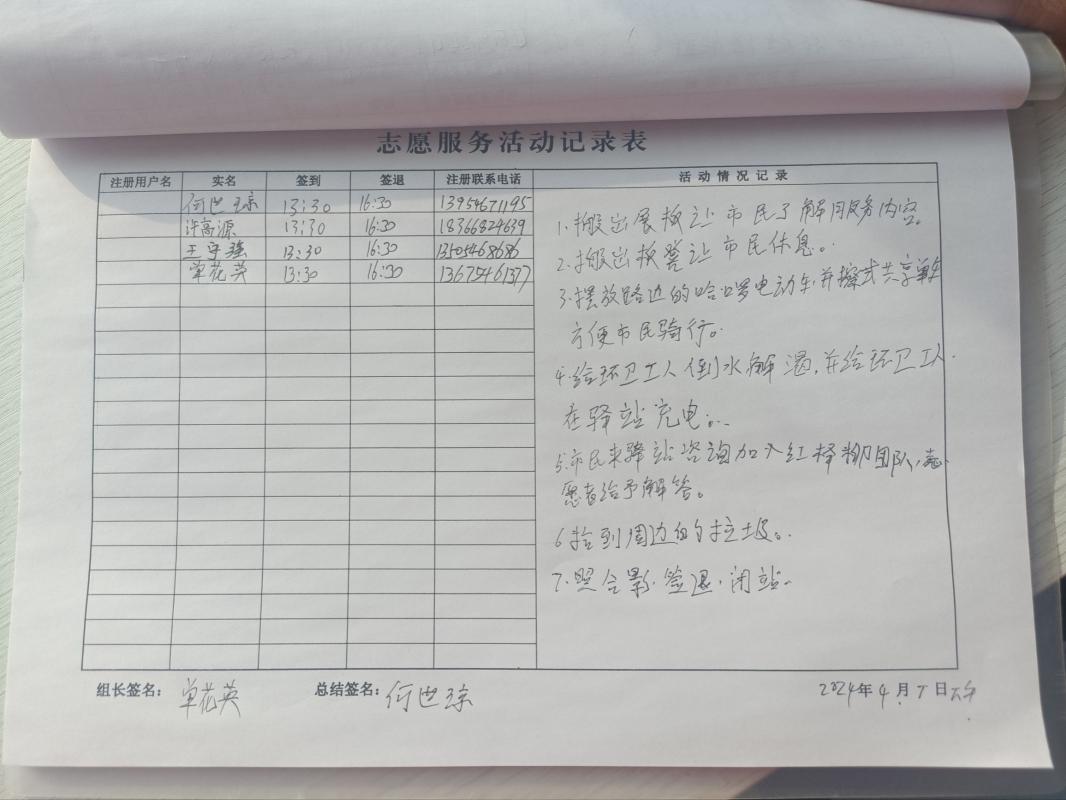 志愿服务活动记录表
注册用户名 实名 签到 签退 注册联系电话 活动情况记录
何世琼 13:30 16:30 13954671195
许高源 13:30 16:30 18366824639
王守强 13:30 16:30 13505468686
单花英 13:30 16:30 13675461377
1.搬出展板让市民了解用服务内容。
2.搬出板凳让市民休息。
3.摆放路边的哈啰电动车,并擦试共享单车
方便市民骑行。
4.给环卫工人倒水解渴,并给环卫工人
在驿站充电。
5.市民来驿站咨询加入红柳团队,志
愿者给予解答。
6捡到周边的垃圾。
7.照合影.签退.闭站.
组长签名: 单花英 总结签名: 何世琼 2024年4月7日下午